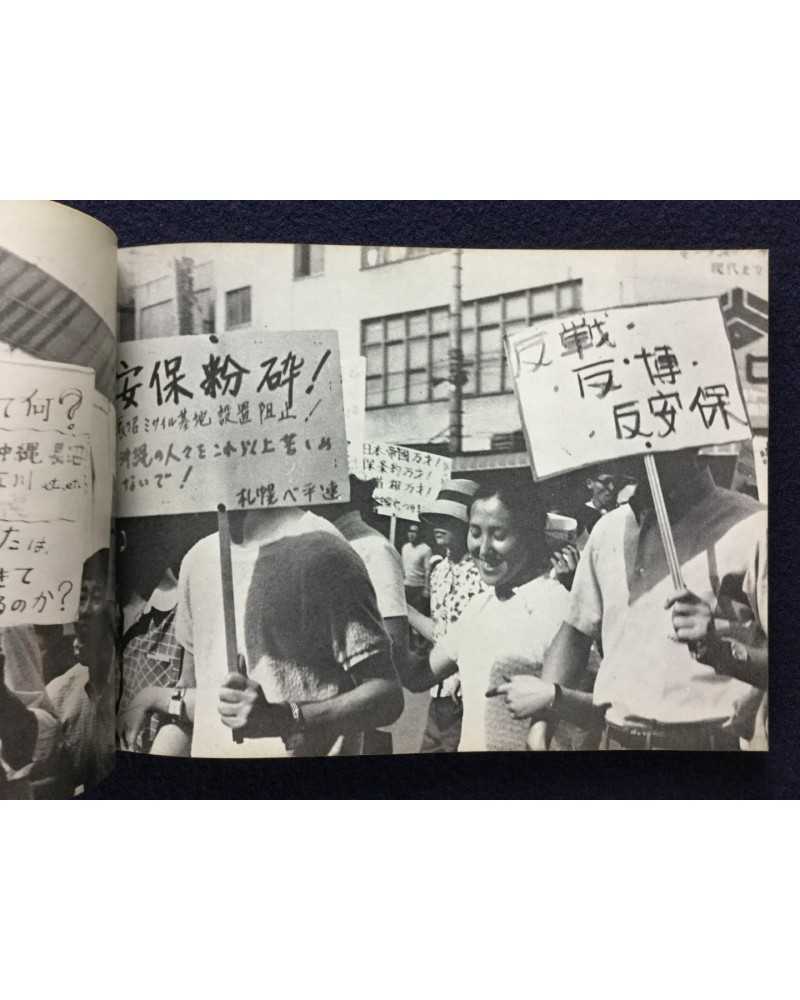 て何?
沖縄 長沼
川 etc.etc.
たは、
きて
るのか?
安保粉砕!
長沼ミサイル基地 設置阻止!
沖縄の人々をこれ以上苦しめ
ないで!
札幌ベ平連
日本帝国万才!
保条約万才!
首相万才!
反戦.
反.博.
反安保
現代